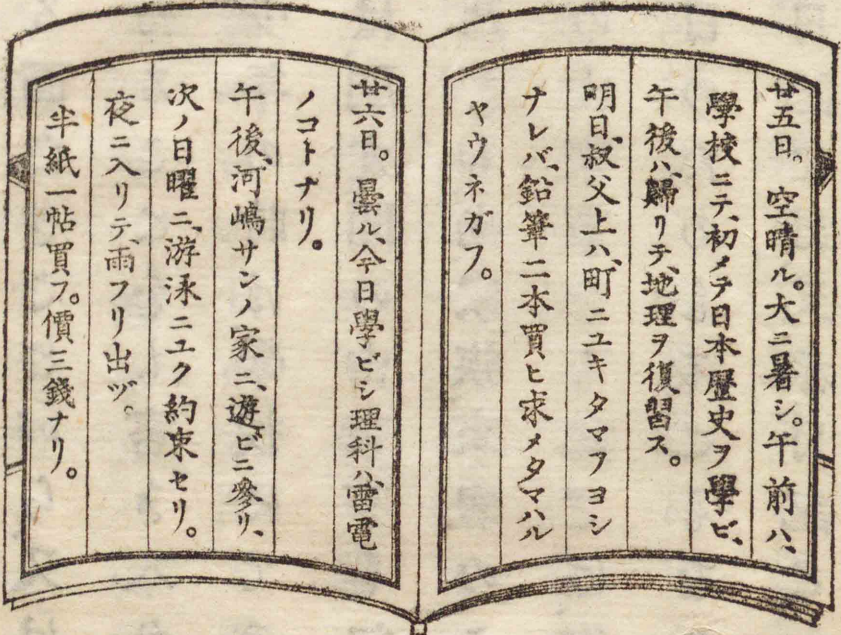 廿五日。空晴ル。大ニ暑シ。午前ハ、
學校ニテ、初メテ日本歷史ヲ學ビ、
午後ハ、歸リテ、地理ヲ復習ス。
明日、叔父上ハ、町ニユキタマフヨシ
ナレバ、鉛筆二本買ヒ求メタマハル
ヤウネガフ。
廿六日。曇ル、今日學ビシ理科ハ、雷電
ノコトナリ。
午後、河嶋サンノ家ニ、遊ビニ參リ、
次ノ日曜ニ、游泳ニユク約束セリ。
夜ニ入リテ、雨フリ出ヅ。
半紙一帖買フ。價三錢ナリ。